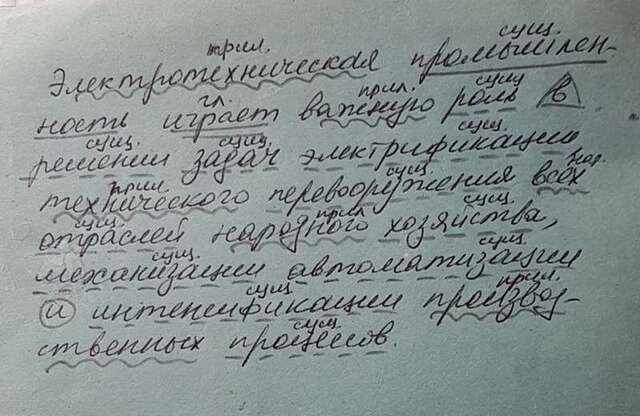 прил. сущ.
Электротехническая промышлен-
гл. прил. сущ
ность играет важную роль в
сущ. сущ. сущ.
решении задач электрификации
прил. сущ.
технического перевооружения всех
сущ. прил сущ.
отраслей народного хозяйства,
сущ. сущ.
механизации автоматизации
сущ. прил.
и интенсификации производ-
сущ.
ственных процессов.